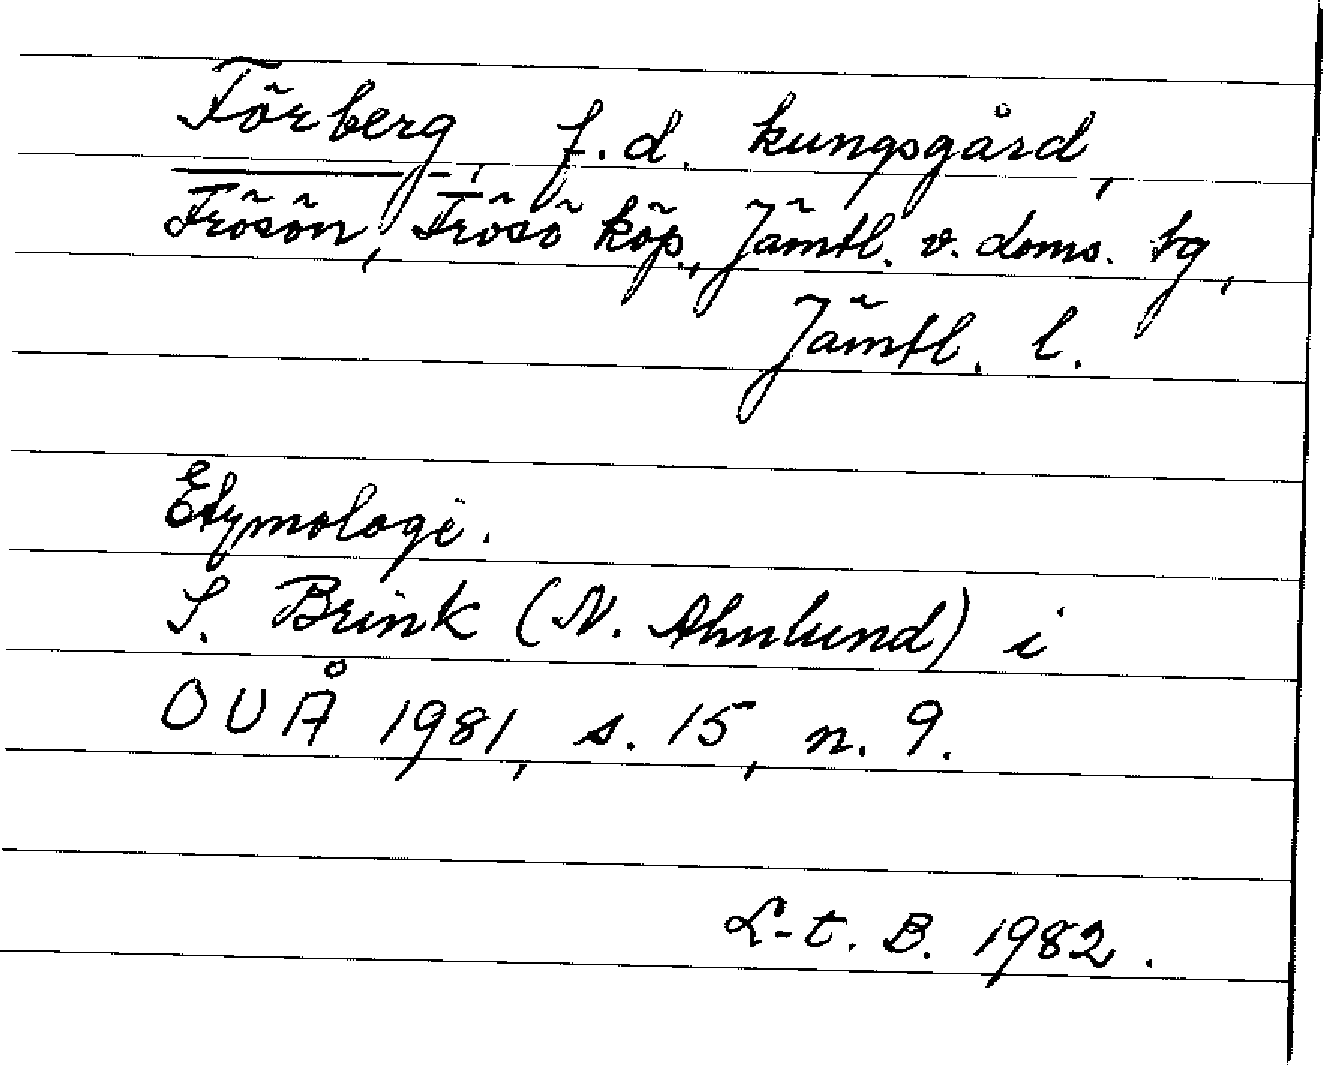 Förberg, f.d. kungsgård,
Frösön, Frösö köp., Jämtl. v. doms. tg,
Jämtl. l.
Etymologi.
S. Brink (N. Ahnlund) i
OUÅ 1981, s. 15, n. 9.
L-t. B. 1982.